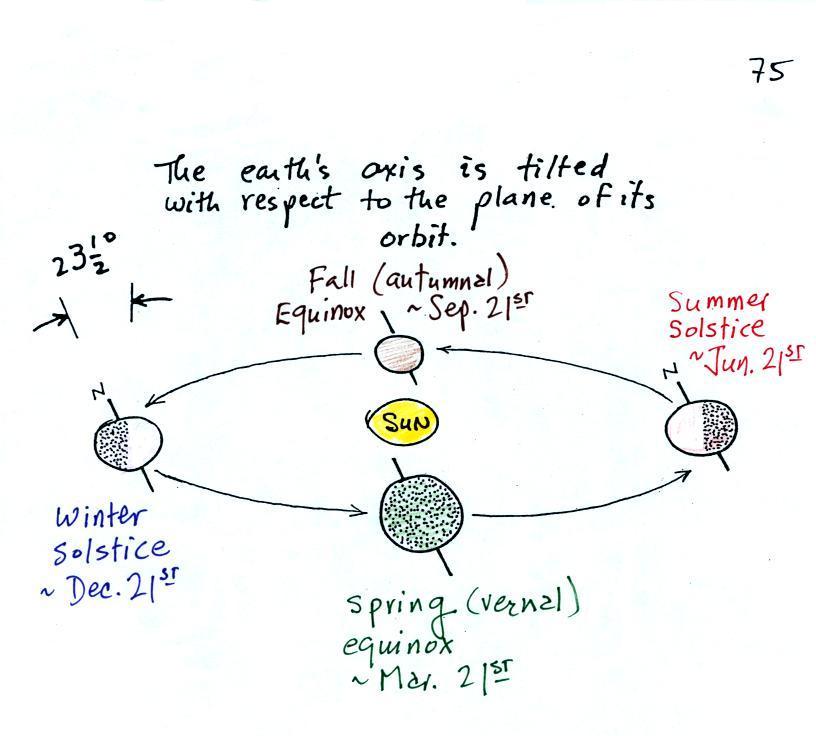 75
The earth's axis is tilted
with respect to the plane of its
orbit.
23 1/2°
Fall (autumnal)
Equinox ~ Sep. 21st
Summer
Solstice
~Jun. 21st
N
N
SUN
Winter
Solstice
~ Dec. 21st
spring (vernal)
equinox
~ Mar. 21st